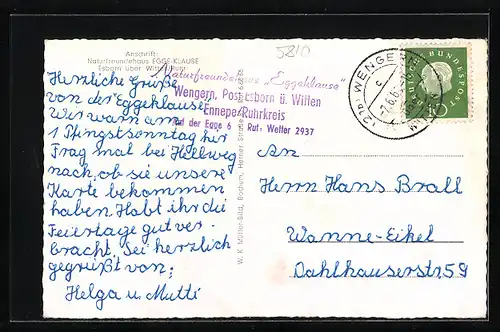 Anschrift:
Naturfreundehaus EGGE-KLAUSE
Esborn über Witten/Ruhr
5810
Naturfreundehaus "Eggeklause"
Wengern, Post Esborn ü. Witten
Ennepe/Ruhrkreis
Auf der Egge 6 Ruf: Wetter 2937
Herzliche Grüße
von der Eggeklause
Wir waren am
1 Pfingstsonntag hier
Frag mal bei Hellweg
nach, ob sie unsere
Karte bekommen
haben. Habt ihr die
Feiertage gut ver-
bracht. Sei herzlich
gegrüßt von;
Helga u. Mutti
W. K. Müller-Bild, Bochum, Herner Straße
WENGERN
DEUTSCHE BUNDESPOST
10
An
Herrn Hans Brall
Wanne-Eikel
Dahlhauserstr. 59